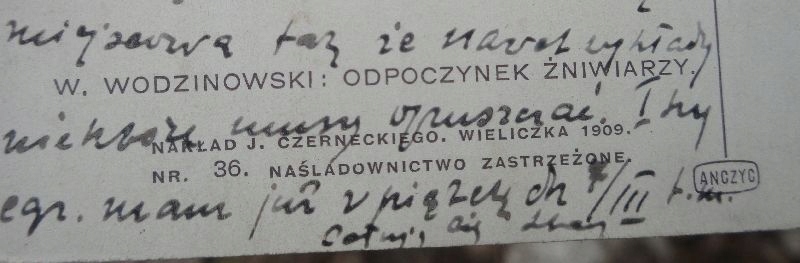 tak że nawet wykłady
W. WODZINOWSKI: ODPOCZYNEK ŻNIWIARZY.
niektóre muszę opuszczać. I-szy
NAKŁAD J. CZERNECKIEGO. WIELICZKA 1909.
NR. 36. NAŚLADOWNICTWO ZASTRZEŻONE.
ANCZYC
egz. mam już w piątek /III b.m.
Całuję Cię